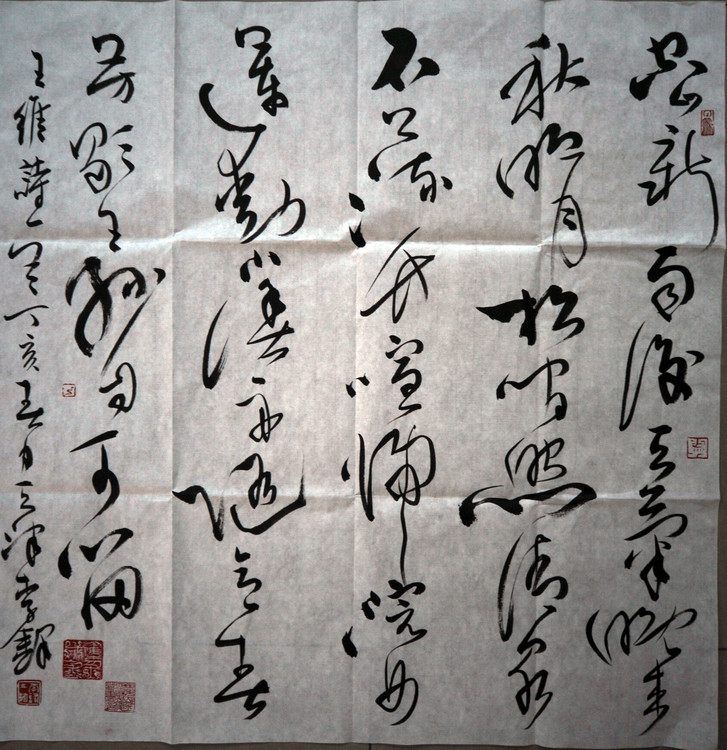 空山新雨後天氣晚來
秋明月松間照清泉
石上流竹喧歸浣女
蓮動下漁舟隨意春
芳歇王孫自可留
王維詩一首丁亥春月天津李鐸